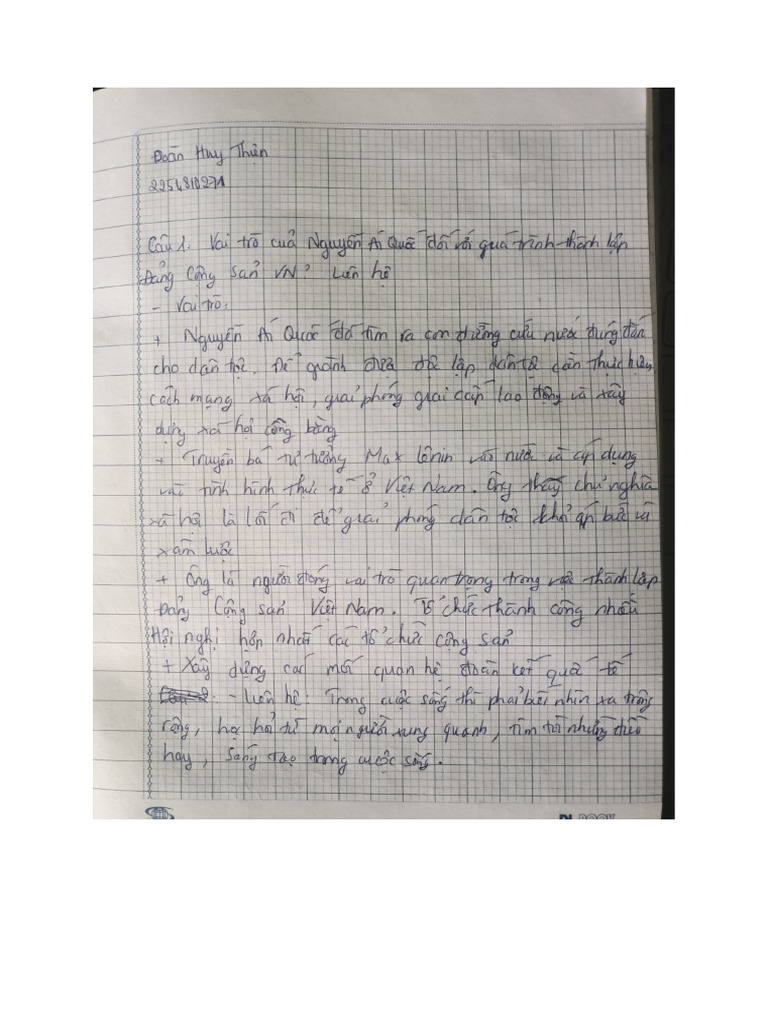 Đoàn Huy Thiên
2254810271
Câu 1. Vai trò của Nguyễn Ái Quốc đối với quá trình thành lập
Đảng Cộng sản VN? Liên hệ
- Vai trò:
+ Nguyễn Ái Quốc đã tìm ra con đường cứu nước đúng đắn
cho dân tộc. Để giành được độc lập dân tộc cần thực hiện
cách mạng xã hội, giải phóng giai cấp lao động và xây
dựng xã hội công bằng
+ Truyền bá tư tưởng Max Lênin vào nước và áp dụng
vào tình hình thực tế ở Việt Nam. Ông thấy chủ nghĩa
xã hội là lối đi để giải phóng dân tộc khỏi áp bức và
xâm lược
+ Ông là người đóng vai trò quan trọng trong việc thành lập
Đảng Cộng sản Việt Nam. Tổ chức thành công nhiều
Hội nghị hợp nhất các tổ chức cộng sản
+ Xây dựng các mối quan hệ đoàn kết quốc tế
- Liên hệ: Trong cuộc sống thì phải biết nhìn xa trông
rộng, học hỏi từ mọi người xung quanh, tìm tòi những điều
hay, sáng tạo trong cuộc sống.